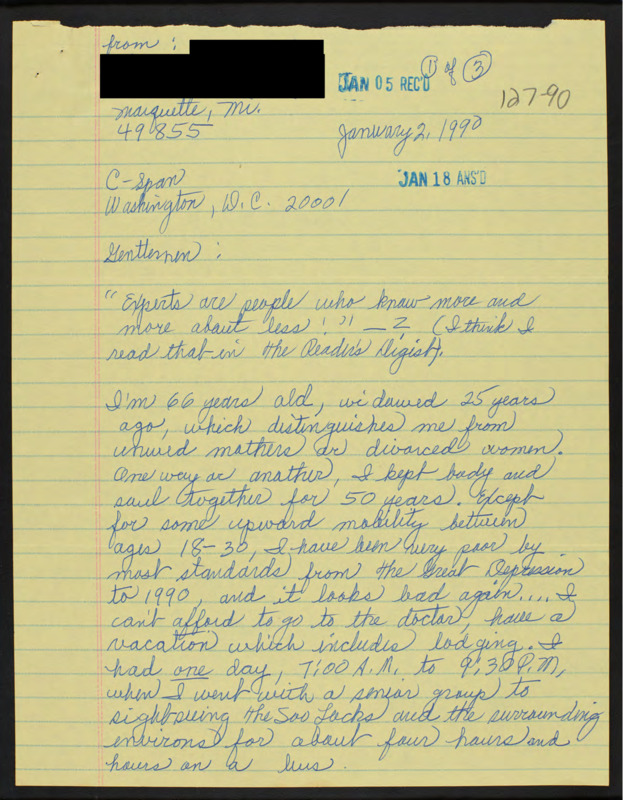 from:
JAN 05 REC'D
1 of 3
127-90
Marquette, Mi.
49855
January 2, 1990
C-Span
JAN 18 ANS'D
Washington, D.C. 20001
Gentlemen:
"Experts are people who know more and
more about less!" — ? (I think I
read that in the Reader's Digist).
I'm 66 years old, widowed 25 years
ago, which distinguishes me from
unwed mothers or divorced women.
One way or another, I kept body and
soul together for 50 years. Except
for some upward mobility between
ages 18-30, I have been very poor by
most standards from the Great Depression
to 1990, and it looks bad again.... I
can't afford to go to the doctor, have a
vacation which includes lodging. I
had one day, 7:00 A.M. to 9:30 P.M,
when I went with a senior group to
sightseeing the Soo Locks and the surrounding
environs for about four hours and
hours on a bus.